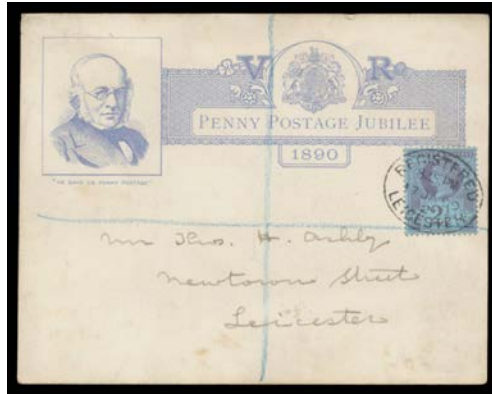 V R
PENNY POSTAGE JUBILEE
1890
"HE GAVE US PENNY POSTAGE"
REGISTERED
LEICESTER
2½
Mr Thos. H. Ashby
Newtown Street
Leicester